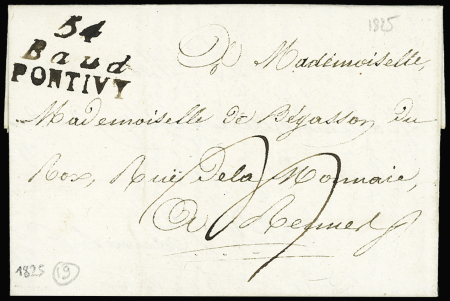 1825
54
Baud
PONTIVY
A Mademoiselle,
Mademoiselle de Bégasson du
Rox, Ruë de la Monnaie,
A Rennes
1825 19